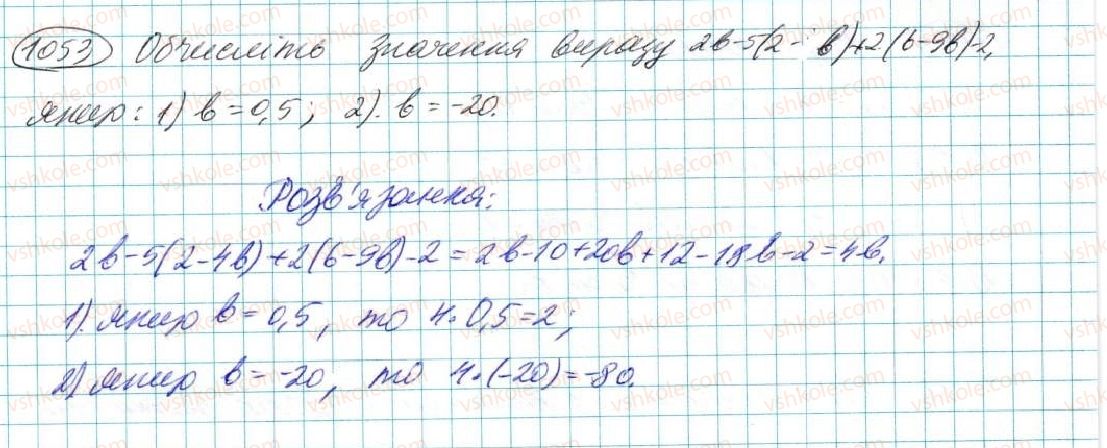 1053 Обчисліть значення виразу 2в-5(2- в)+2(6-9в)-2,
якщо: 1) в=0,5; 2). в=-20.
Розв'язання:
2в-5(2-4в)+2(6-9в)-2=2в-10+20в+12-18в-2=4в.
1). якщо в=0,5, то 4·0,5=2;
2) якщо в=-20, то 4·(-20)=-80.